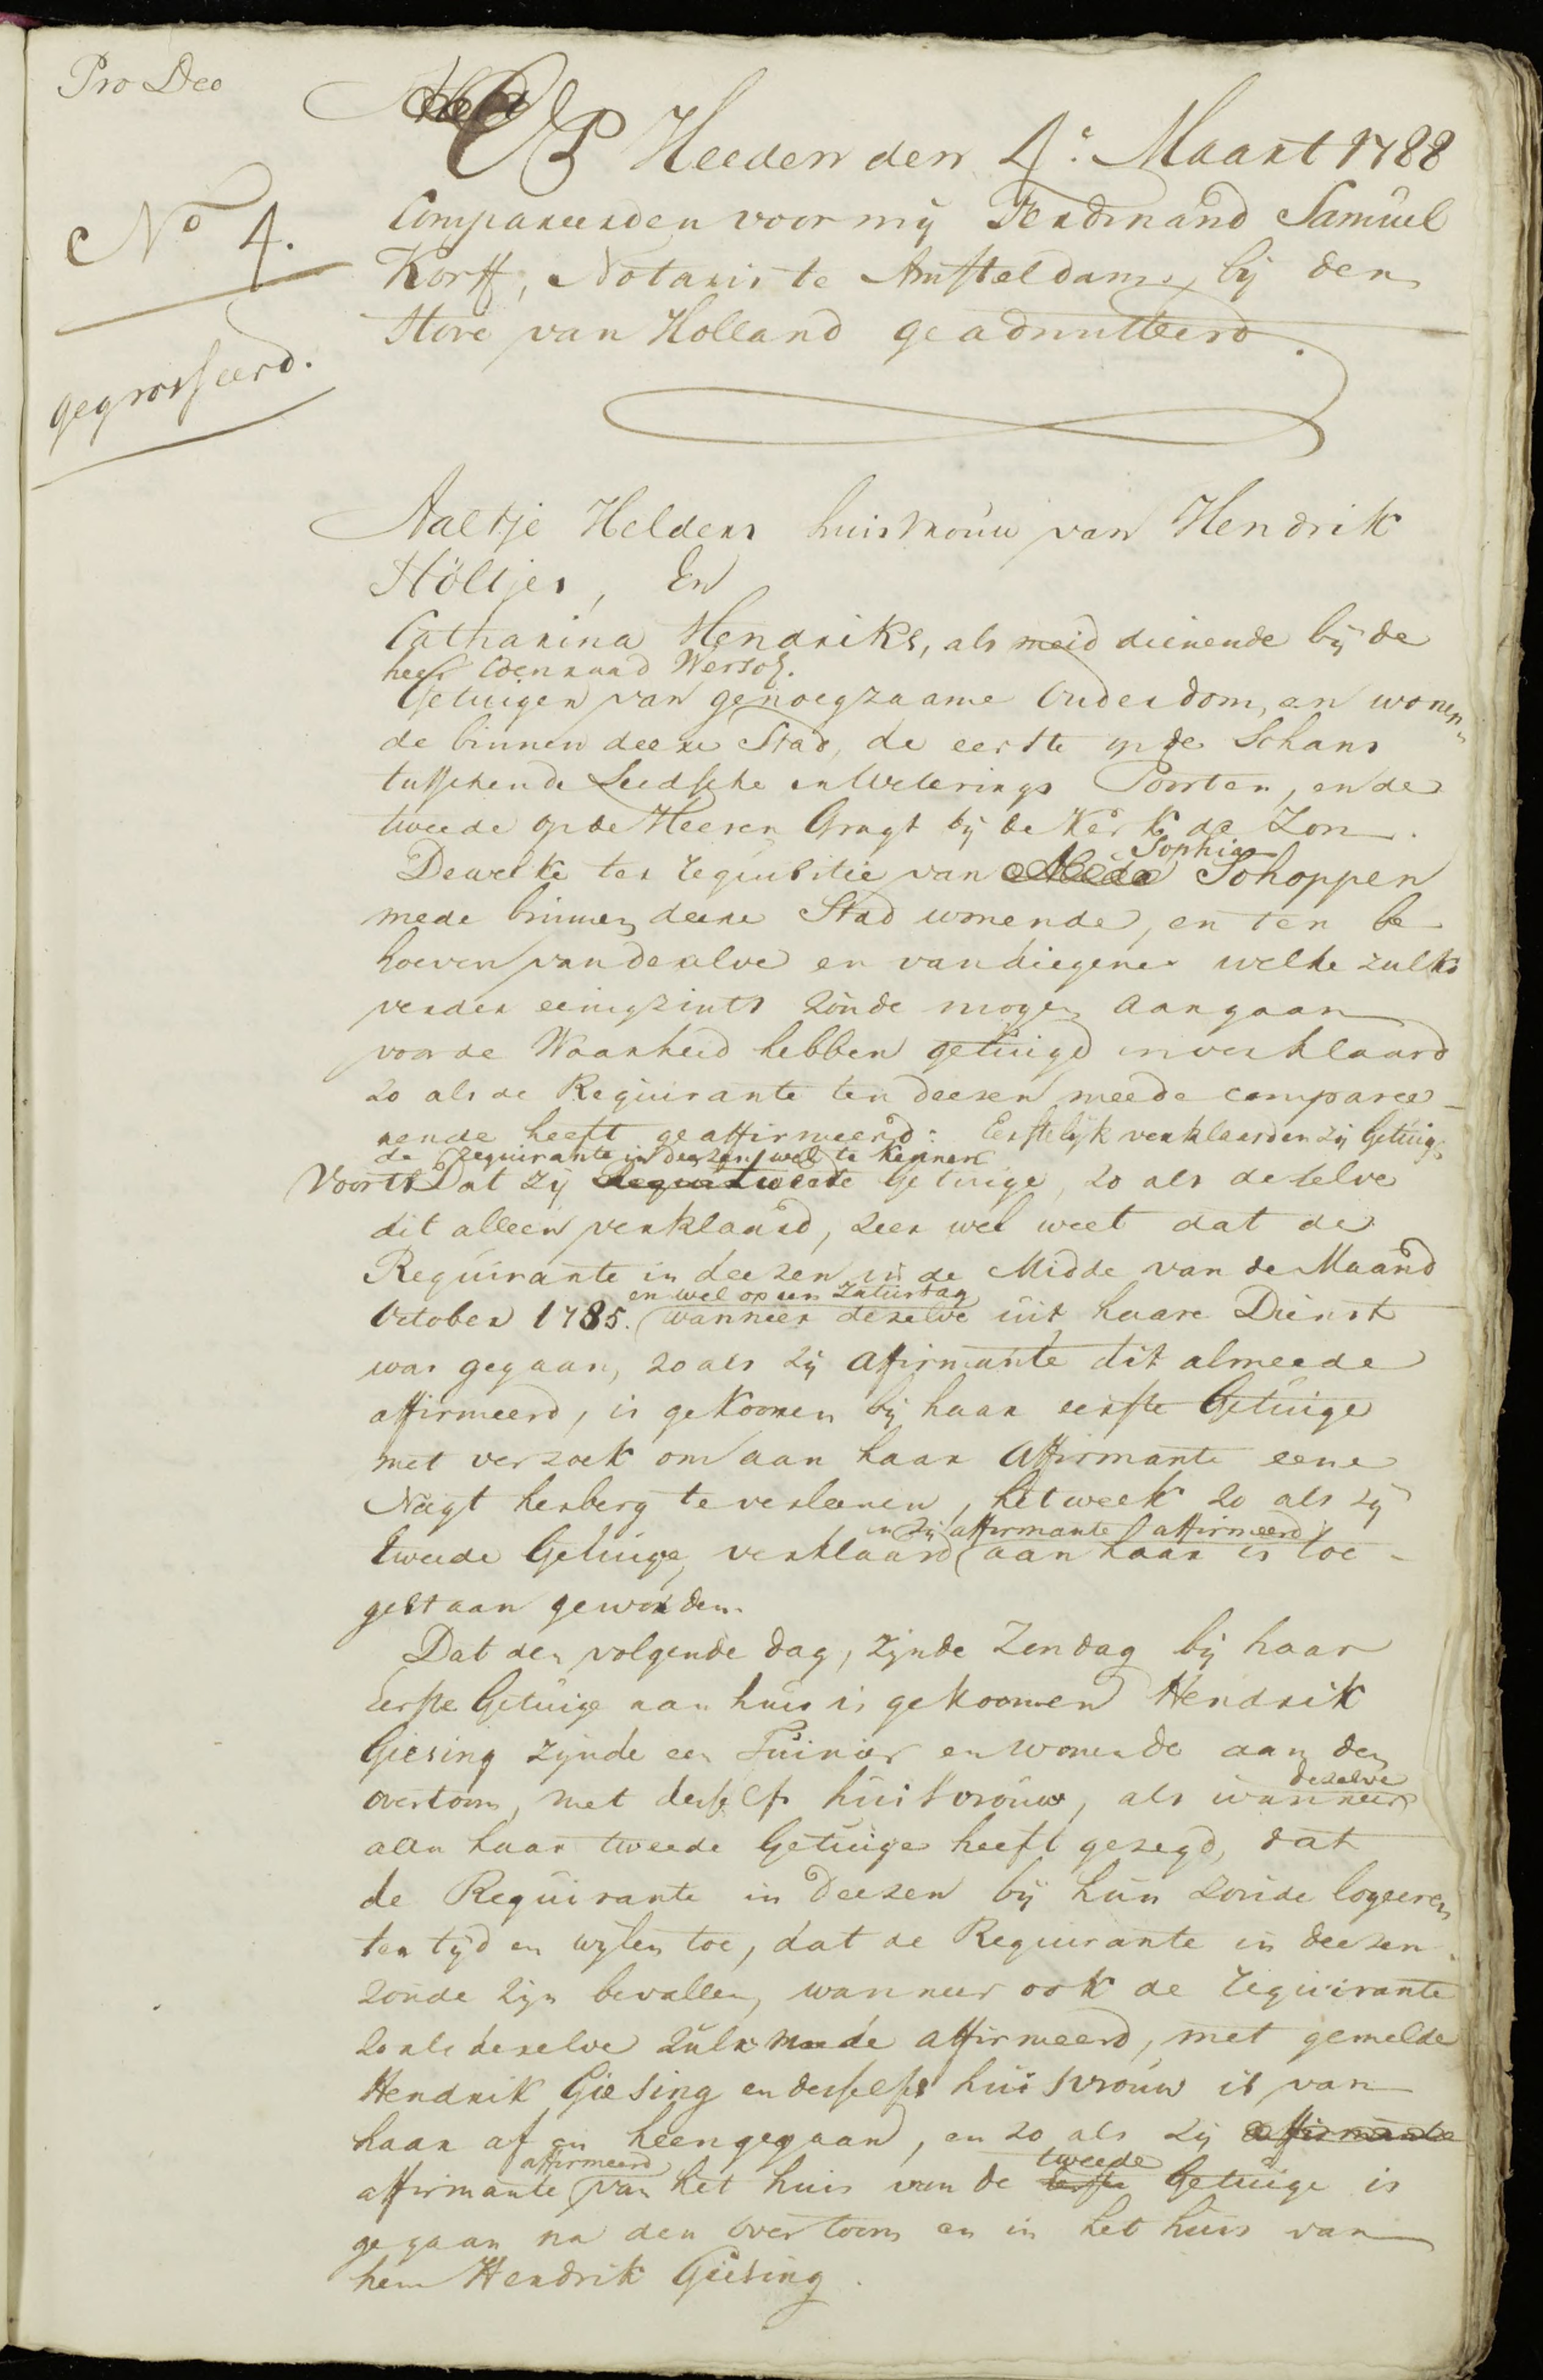 Pro Deo
Op Heeden den 4e. Maart 1788
No 4.
Compareerden voor mij Ferdinand Samuel
Korff, Notaris te Amsteldam, bij den
Hove van Holland geadmitteerd.
gegrosseerd.
Aaltje Helders huisvrouw van Hendrik
Höltjes, En
Catharina Hendriks, als meid dienende bij de
heer Coenraad Wersoz.
Getuigen van genoegzaame Ouderdom, en wonen
de binnen deeze Stad, de eerste op de Schans
tusschen de Leedsche en Weterings Poorten, en de
tweede op de Heeren Gragt bij de Kerk de Zon.
Sophia
Dewelke ter requisitie van Schoppen
mede binnen deeze Stad wonende, en ten be
hoeven van dezelve en van diegenen welke zulks
verder eenigzints zoude mogen aangaan
voor de Waarheid hebben getuigd en verklaard
zo als de Requirante ten deezen meede comparee-
rende heeft geaffirmeerd: Eerstelijk verklaarden zij Getuig:
de Requirante in deezen wel te kennen
Voorts Dat zij tweede Getuige, zo als deselve
dit alleen verklaard, zeer wel weet dat de
Requirante in deezen in de Midde van de Maand
en wel op een Zaturdag
October 1785. wanneer dezelve uit haare Dienst
was gegaan, zo als zij Afirmante dit almeede
affirmeerd, is gekoomen bij haar eerste Getuige
met verzoek om aan haar Affirmante eene
Nagt herberg te verleenen, het week zo als zij
en zij affirmante affirmeerd
tweede Getuige, verklaard aan haar is toe-
gestaan geworden.
Dat den volgende dag, zijnde Zondag bij haar
Eerste Getuige aan huis is gekoomen Hendrik
Giesing zijnde een Tuinier en wonende aan den
dezelve
overtoom, met desselfs huisvrouw, als wanneer
aan haar tweede Getuige heeft gezegd, dat
de Requirante in Deezen bij hun zoude logeeren
ter tijd en wijlen toe, dat de Requirante in deezen
zoude zijn bevallen, wanneer ook de requirante
zo als dezelve zulx meede affirmeerd, met gemelde
Hendrik Giesing en desselfs huisvrouw is van
haar af en heengegaan, en zo als zij affirmante
affirmeerd tweede
affirmante van het huis van de eerste Getuige is
gegaan na den overtoom en in het huis van
hem Hendrik Giesing.